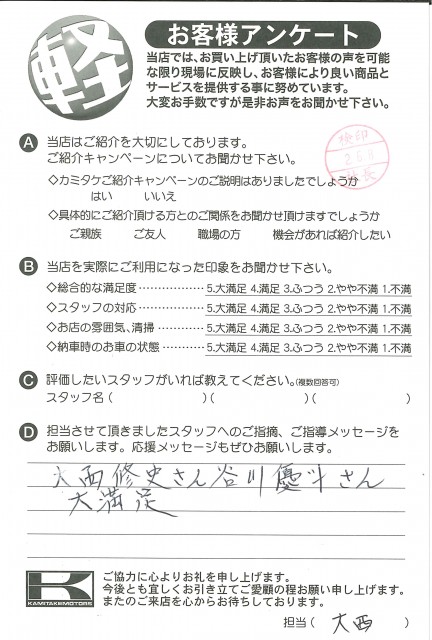 軽
お客様アンケート
当店では、お買い上げ頂いたお客様の声を可能
な限り現場に反映し、お客様により良い商品と
サービスを提供する事に努めています。
大変お手数ですが是非お声をお聞かせ下さい。
A 当店はご紹介を大切にしております。
ご紹介キャンペーンについてお聞かせ下さい。
検印
2.6.8
店長
◇カミタケご紹介キャンペーンのご説明はありましたでしょうか
はい いいえ
◇具体的にご紹介頂ける方とのご関係をお聞かせ頂けますでしょうか
ご親族 ご友人 職場の方 機会があれば紹介したい
B 当店を実際にご利用になった印象をお聞かせ下さい。
◇総合的な満足度 ・・・・・・・・・・・・・・ 5.大満足 4.満足 3.ふつう 2.やや不満 1.不満
◇スタッフの対応 ・・・・・・・・・・・・・・ 5.大満足 4.満足 3.ふつう 2.やや不満 1.不満
◇お店の雰囲気、清掃 ・・・・・・・・・・ 5.大満足 4.満足 3.ふつう 2.やや不満 1.不満
◇納車時のお車の状態 ・・・・・・・・・・ 5.大満足 4.満足 3.ふつう 2.やや不満 1.不満
C 評価したいスタッフがいれば教えてください。(複数回答可)
スタッフ名 ( )( )( )
D 担当させて頂きましたスタッフへのご指摘、ご指導メッセージを
お願いします。応援メッセージもぜひお願いします。
大西修史さん谷川優斗さん
大満足
K
KAMITAKEMOTORS
ご協力に心よりお礼を申し上げます。
今後とも宜しくお引き立てご愛顧の程お願い申し上げます。
またのご来店を心からお待ちしております。
担当 ( 大西 )